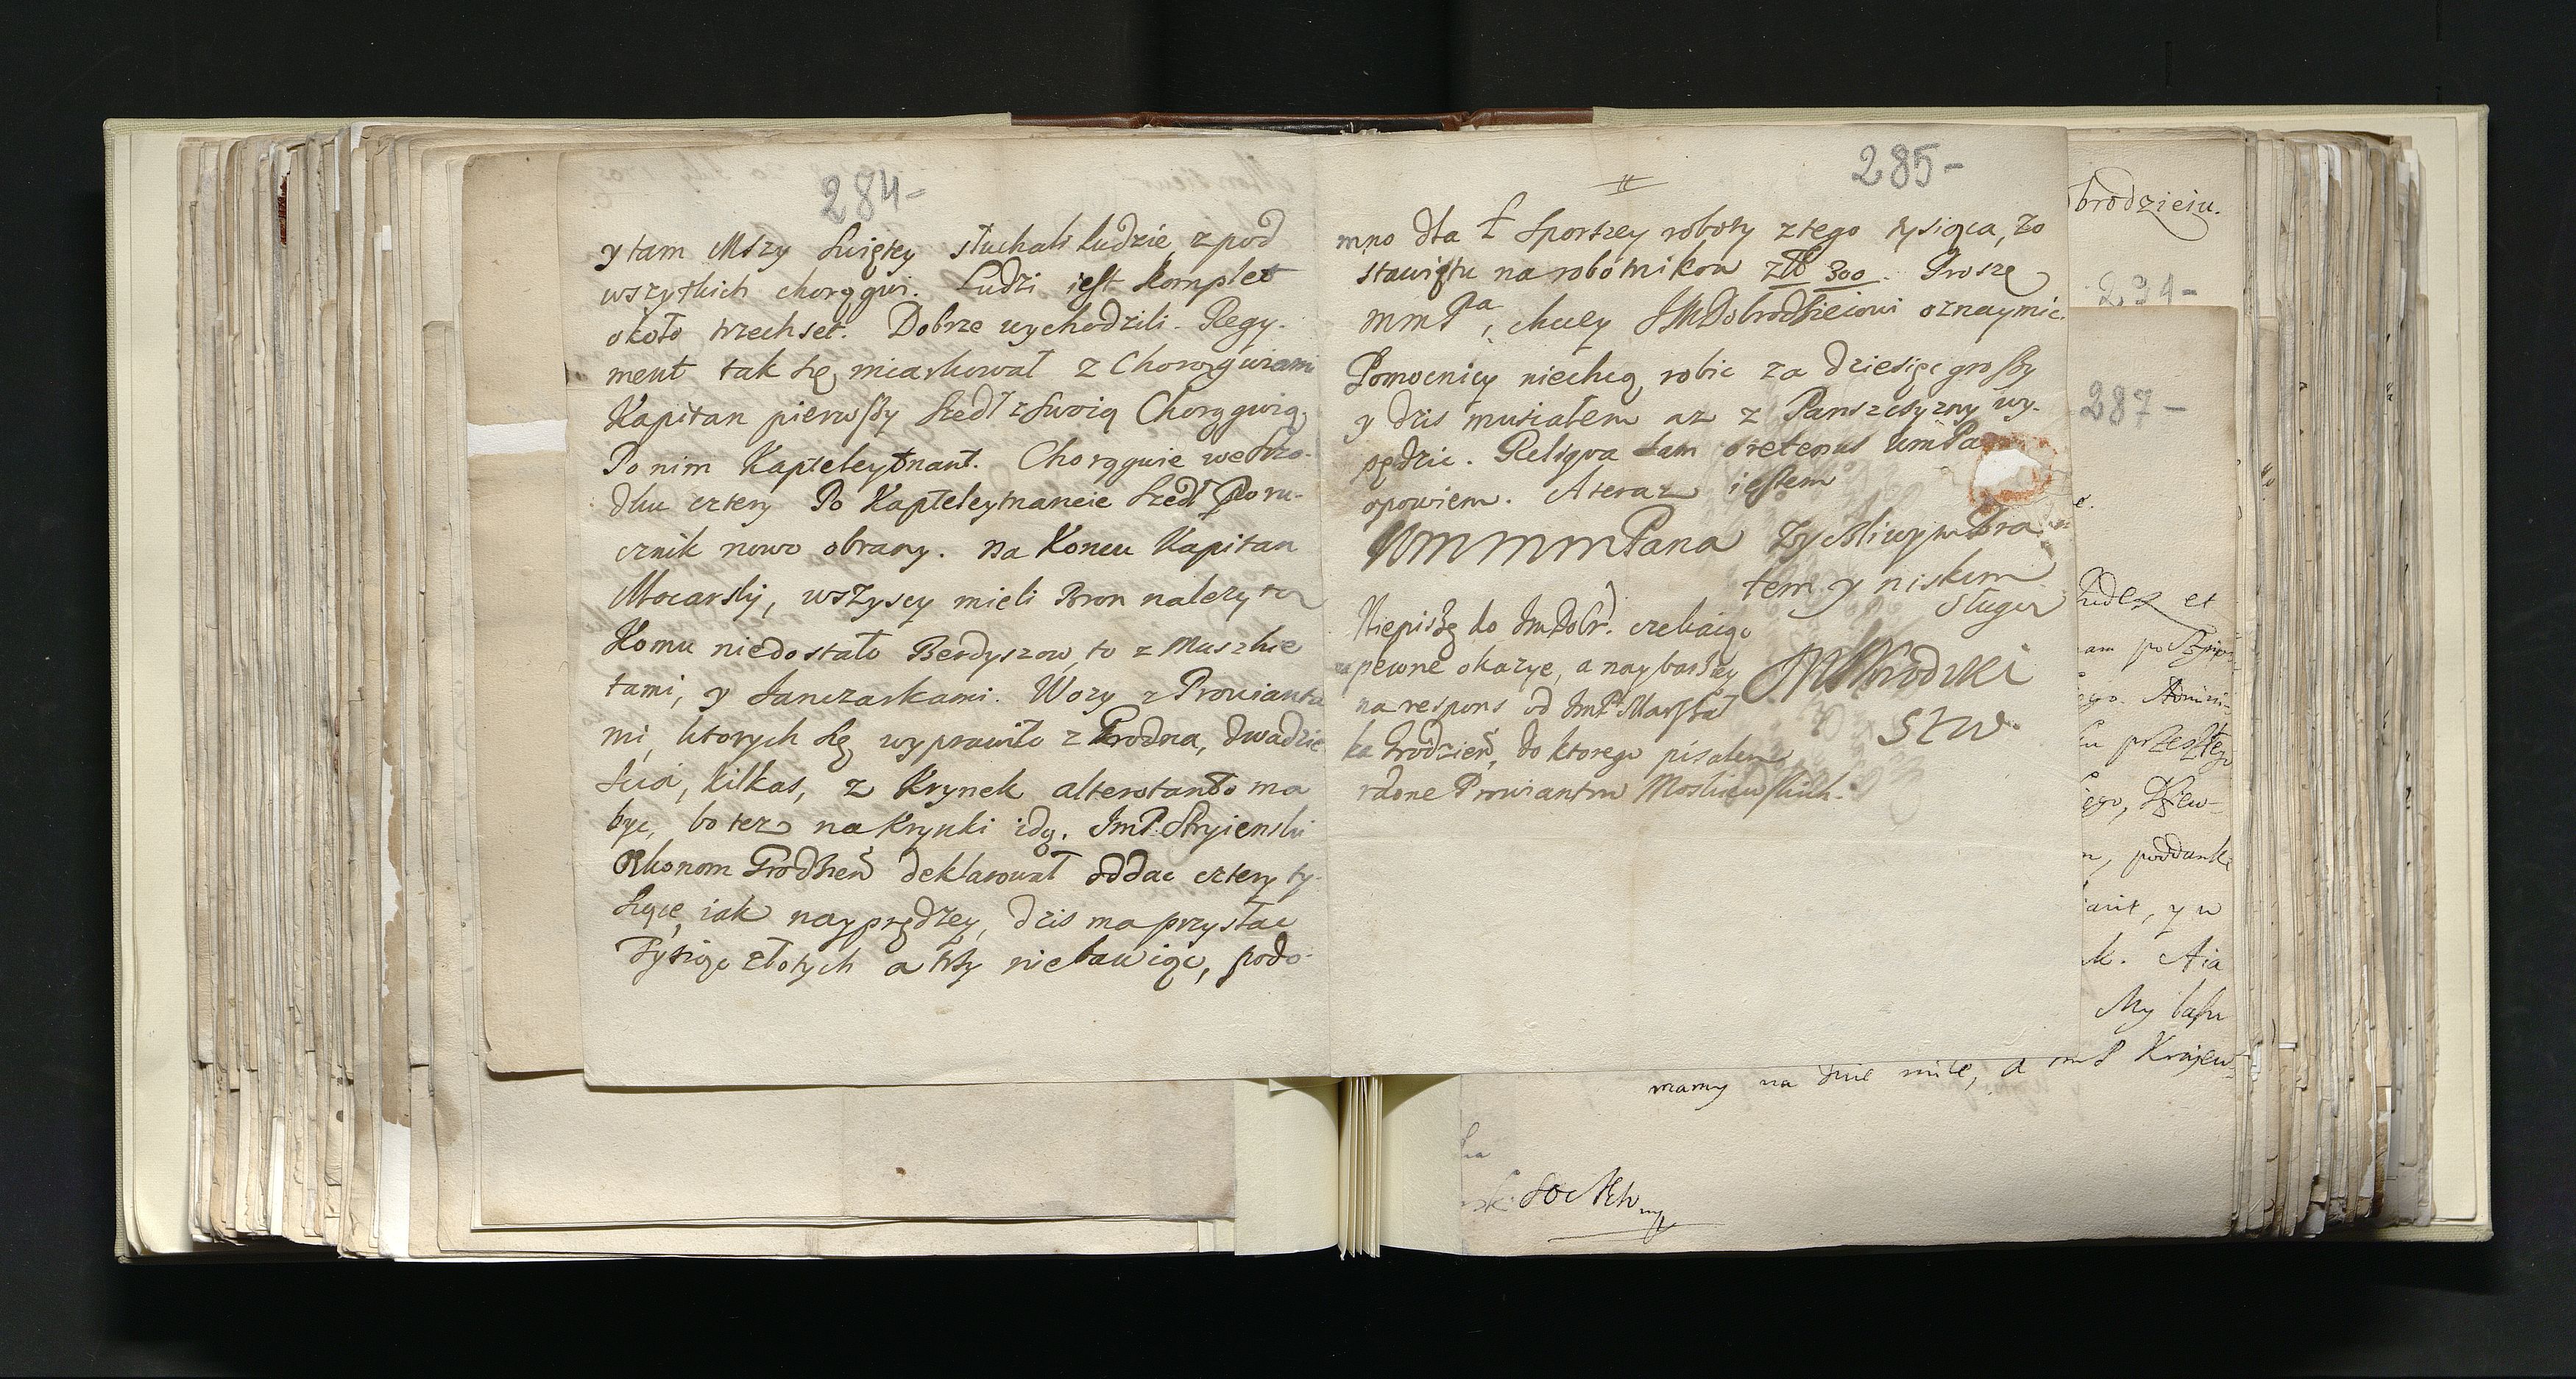 284-
y tam Mszy Swiętey słuchali ludzie z pod
wszytkich chorągwi. Ludzi iest komplet
około trzechset. Dobrze wychodzili. Regy-
ment tak się miarkował z Chorągwiami
Kapitan pierwszy szedł z swoią Chorągwią,
Po nim Kapteleytnant. Chorągwie we szro-
dku cztery Po Kapteleytnancie szedł Poru-
cznik nowo obrany. Na Koncu Kapitan
Mocarski, wszyscy mieli Bron należytą
Komu niedostało Berdyszow, to z Muszkie
tami, y Janczarkami. Wozy z Prowianta
mi, ktorych się wyprawiło z Grodna, dwadzie
scia, kilkas, z Krynek alterotanto ma
byc, bo tez na Krynki idą. ImP. Stryienski
Ekonom Grodzień deklarował oddac cztery ty-
siące, iak nayprędzey, dzis ma przysłac
Tysiąc złotych a trzy niebawiąc, podo-
285-
mno dla sporszey roboty z tego tysiąca, zo
stawiłem na robotnikow zł 300. Proszę
MmPa, chciey JMDobrodzieiowi oznaymic.
Pomocnicy niechcą robic za dziesięc groszy
y dzis musiałem az z Panszczyzny wy-
pędzic. Reliqua sam oretenus WmPa
opowiem. A teraz iestem
WmmmPana Zyczliwym Bra
tem y niskim
Sługą
Niepiszę do ImDobr. czekaiąc
pewne okazye, a naybarziey
na respons od ImP. Marszał
ka Grodzień, do ktorego pisałem
Prowiantow Moskiewskich.
brodzieiu.
294-
287-
Judex et
przeszłego
poddank
y w
Aia
My
mamy na dnie mile, a Krajew-